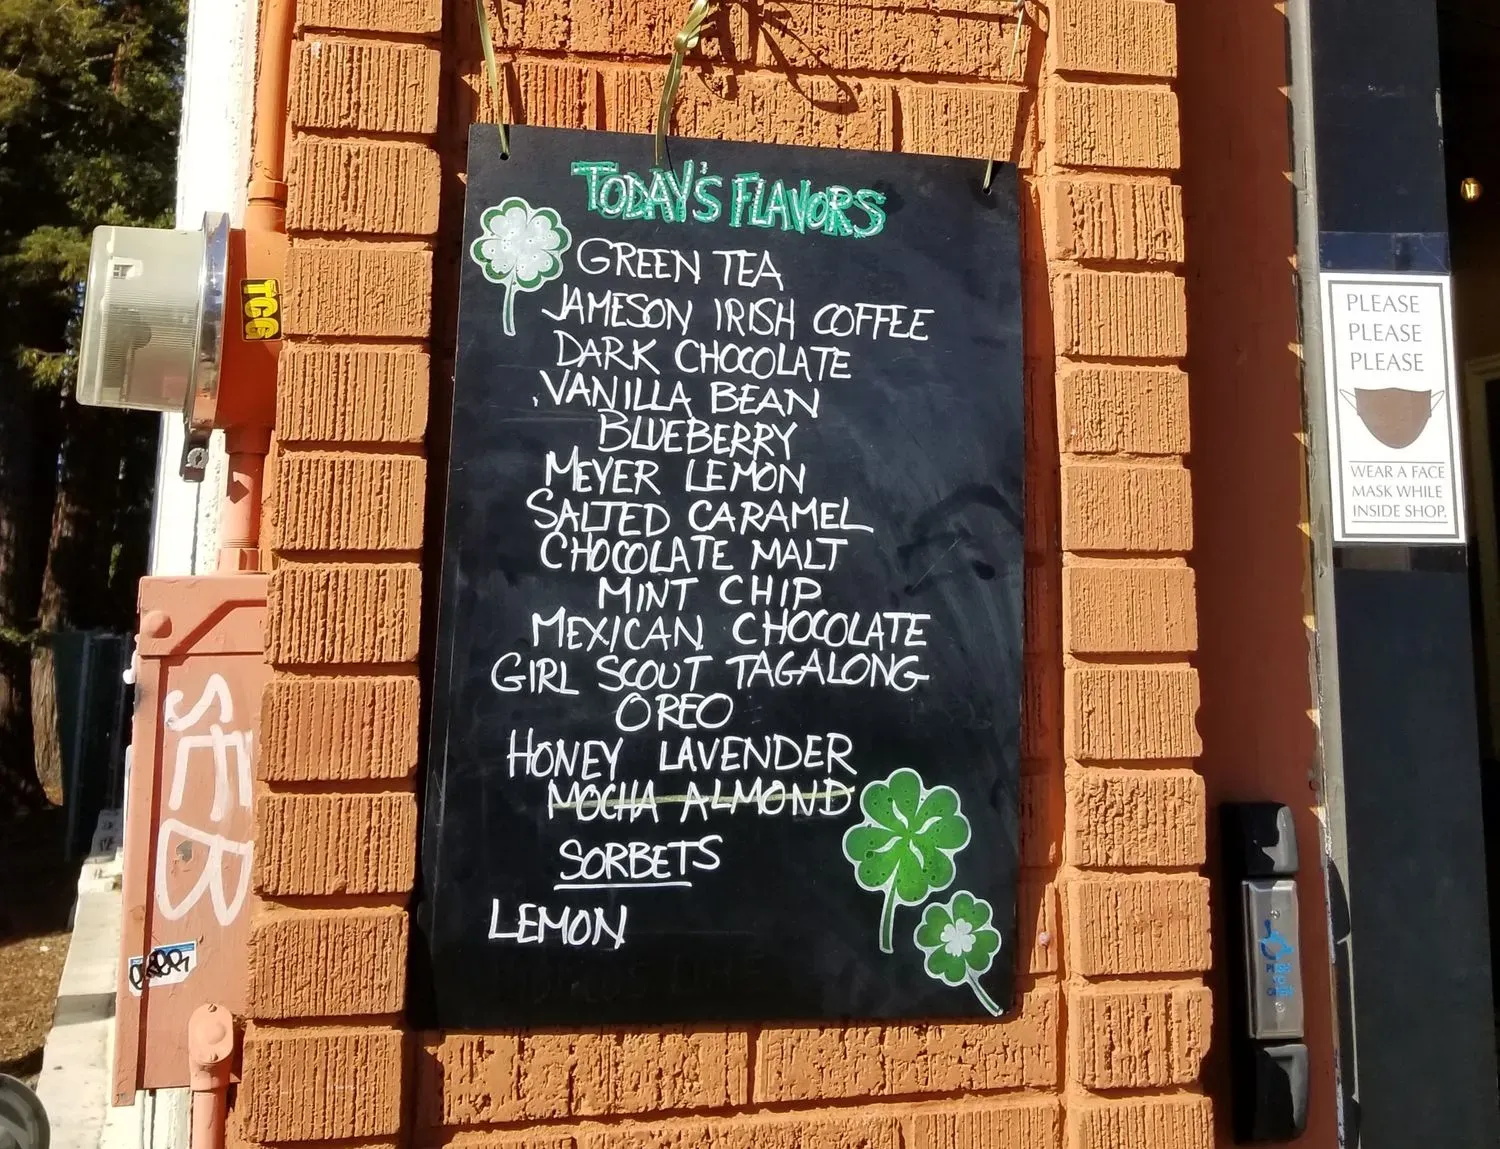 TODAY'S FLAVORS
GREEN TEA
JAMESON IRISH COFFEE
DARK CHOCOLATE
VANILLA BEAN
BLUEBERRY
MEYER LEMON
SALTED CARAMEL
CHOCOLATE MALT
MINT CHIP
MEXICAN CHOCOLATE
GIRL SCOUT TAGALONG
OREO
HONEY LAVENDER
MOCHA ALMOND
SORBETS
LEMON
PLEASE
PLEASE
PLEASE
WEAR A FACE
MASK WHILE
INSIDE SHOP.
TCG
SEB